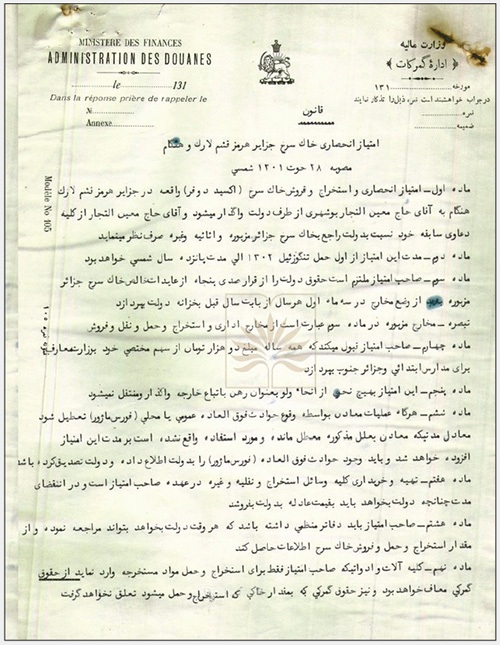 MINISTÈRE DES FINANCES
ADMINISTRATION DES DOUANES
le 131
Dans la réponse prière de rappeler le
N:
Annexe
Modèle No 105
وزارت مالیه
ادارهٔ گمرکات
مورخه ۱۳۱
در جواب خواهشمند است نمره ذیل را تذکار نمایند
نمره
ضمیمه
قانون
امتیاز انحصاری خاك سرخ جزایر هرمز قشم لارك و هنگام
مصوبه ۲۸ حوت ۱۳۰۱ شمسی
ماده اول ــ امتیاز انحصاری و استخراج و فروش خاك سرخ (اکسید دوفر) واقعه در جزایر هرمز قشم لارك
هنگام به آقای حاج معین التجار بوشهری از طرف دولت واگذار میشود و آقای حاج معین التجار از کلیه
دعاوی سابقه خود نسبت بدولت راجع بخاك سرخ جزائر مزبوره و اثاثیه وغیره صرف نظر مینماید
دوم ــ مدت این امتیاز از اول حمل تنگوزئیل ۱۳۰۲ الی مدت پانزده سال شمسی خواهد بود
سوم ــ صاحب امتیاز ملتزم است حقوق دولت را از قرار صدی پنجاه از عایدات خالص خاك سرخ جزائر
مزبوره بعد از وضع مخارج در سه ماه اول هر سال از بابت سال قبل بخزانه دولت بپردازد
تبصره ــ مخارج مزبوره در ماده سوم عبارت است از مخارج اداری و استخراج و حمل و نقل و فروش
چهارم ــ صاحب امتیاز قبول میکند که همه ساله مبلغ دو هزار تومان از سهم مختصی خود بوزارت معارف
برای مدارس ابتدائی وجزائر جنوب بپردازد
ماده پنجم ــ این امتیاز بهیچ نحوی از انحاء ولو بعنوان رهن باتباع خارجه واگذار ومنتقل نمیشود
ماده ششم ــ هرگاه عملیات معادن بواسطه وقوع حوادث فوق العاده عمومی یا محلی (فورس ماژور) تعطیل شود
معادل مدتیکه معادن بعلل مذکوره معطل مانده و مورد استفاده واقع نشده است بر مدت این امتیاز
افزوده خواهد شد و باید وجود حوادث فوق العاده (فورس ماژور) را بدولت اطلاع داده و دولت تصدیق کرده باشد
ماده هفتم ــ تهیه و خریداری کلیه وسائل استخراج و نقلیه و غیره در عهده صاحب امتیاز است و در انقضای
مدت چنانچه دولت بخواهد باید بقیمت عادله بدولت بفروشد
ماده هشتم ــ صاحب امتیاز باید دفاتر منظمی داشته باشد که هر وقت دولت بخواهد بتواند مراجعه نموده و از
مقدار استخراج و حمل و فروش خاك سرخ اطلاعات حاصل کند
ماده نهم ــ کلیه آلات و ادواتیکه صاحب امتیاز فقط برای استخراج و حمل مواد مستخرجه وارد نماید از حقوق
گمرکی معاف خواهد بود و نیز حقوق گمرکی که بمقدار خاکی که استخراج و حمل میشود تعلق نخواهد گرفت